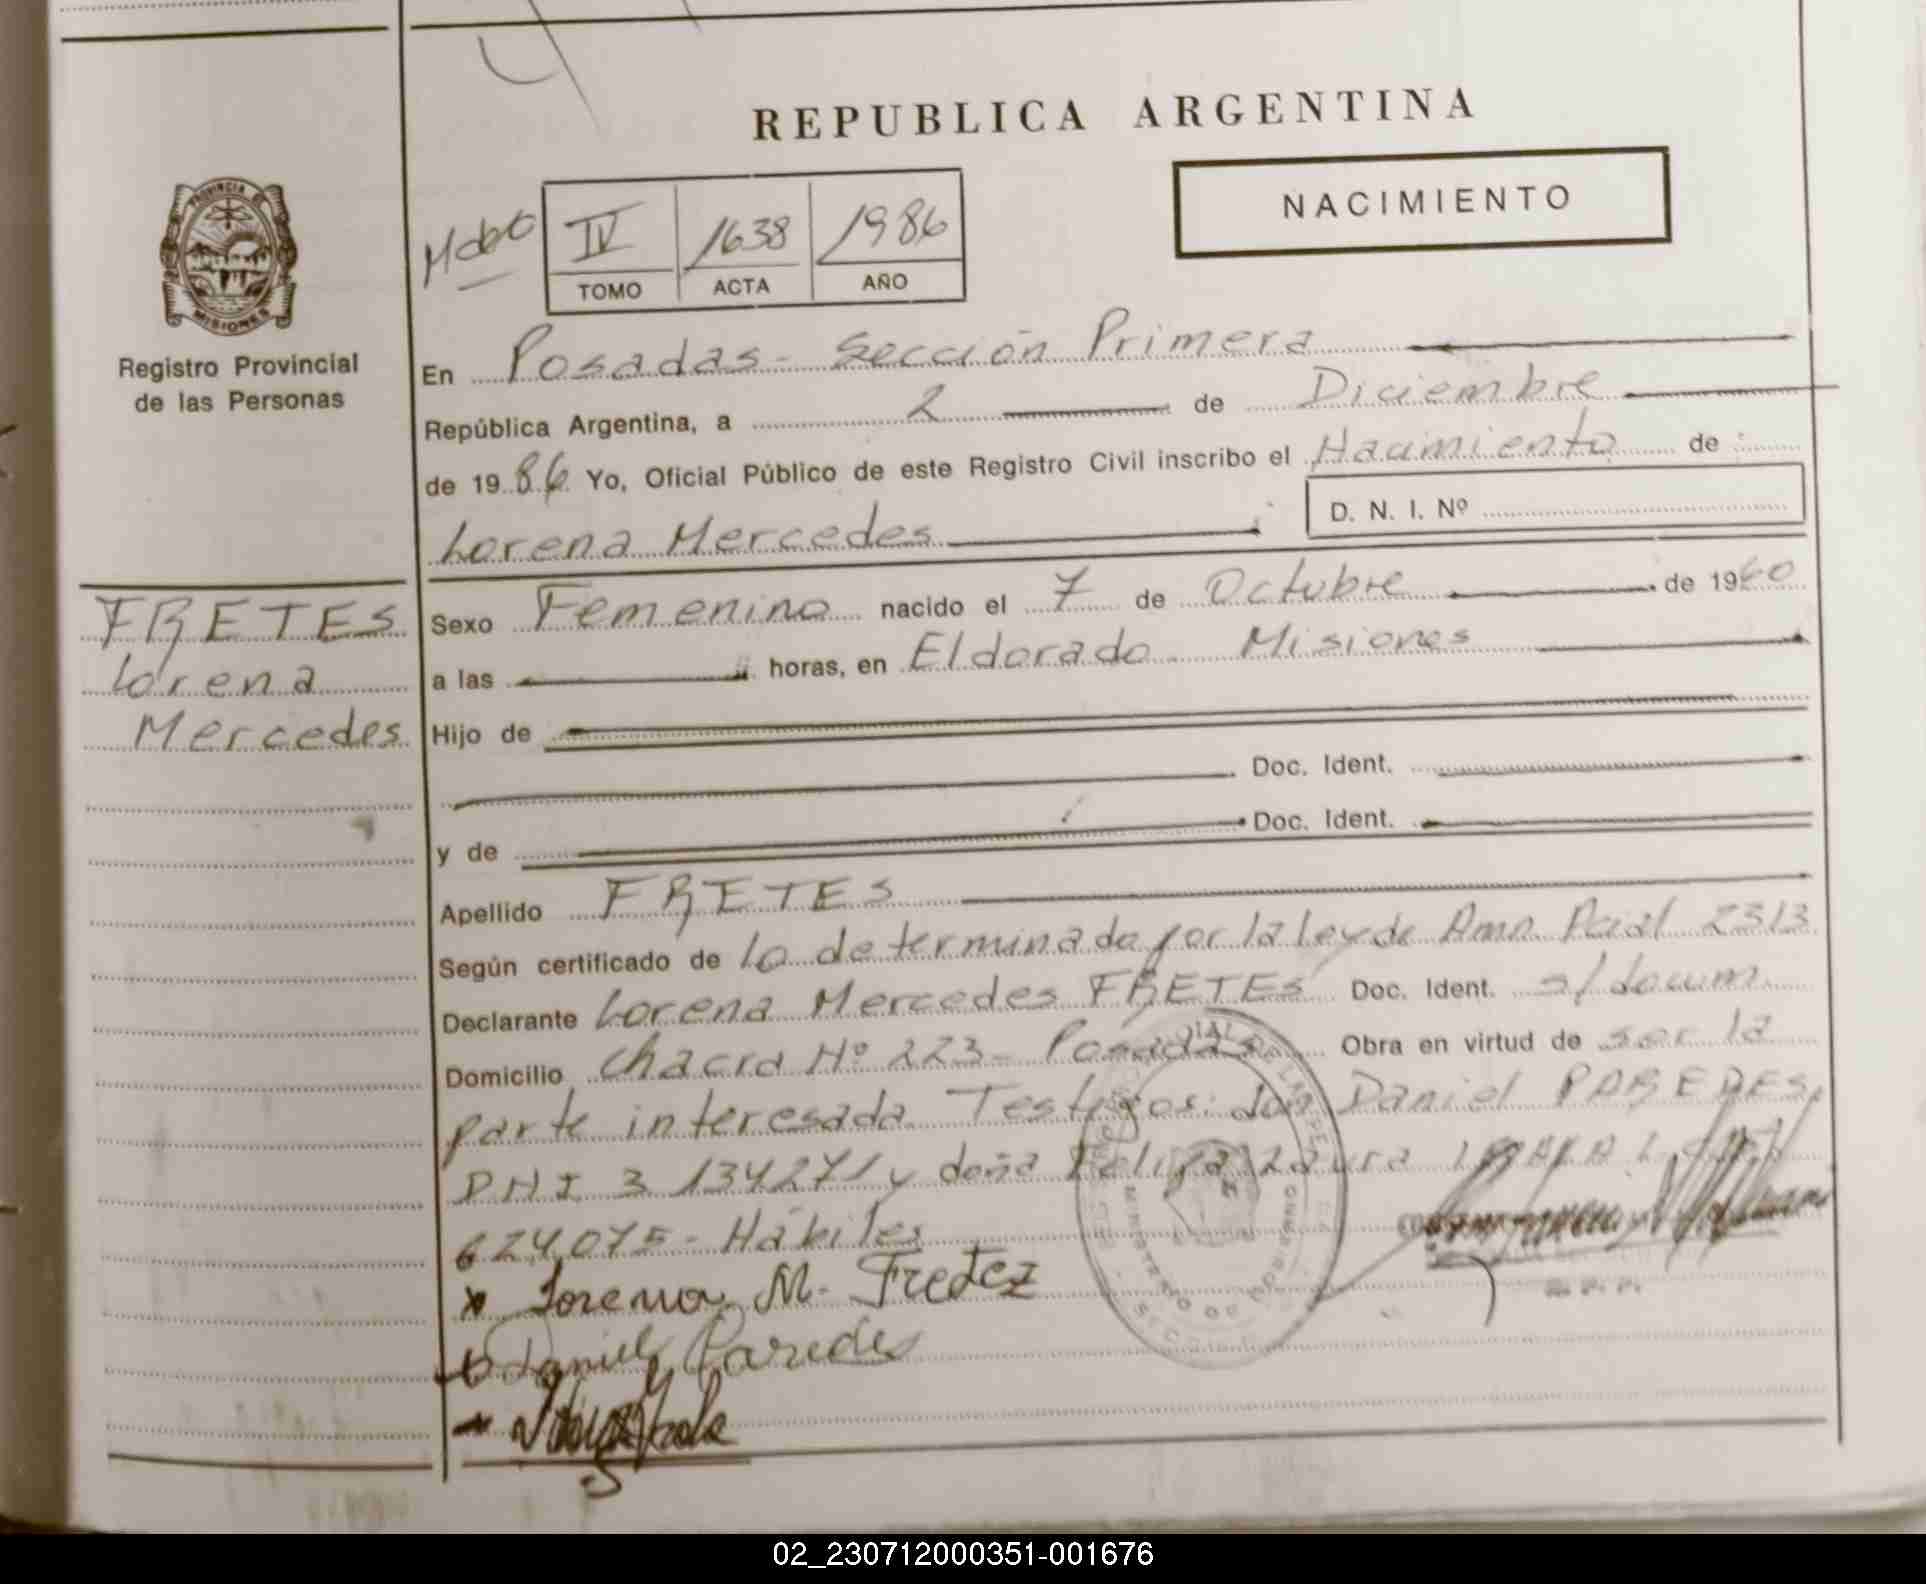 REPUBLICA ARGENTINA
NACIMIENTO
IV 1638 1986
TOMO ACTA AÑO
PROVINCIA DE
MISIONES
Registro Provincial
de las Personas
En Posadas - Sección Primera
República Argentina, a 2 de Diciembre
de 1986 Yo, Oficial Público de este Registro Civil inscribo el Nacimiento de
D. N. I. Nº
Lorena Mercedes
FRETES
Lorena
Mercedes
Sexo Femenino nacido el 7 de Octubre de 1960
a las horas, en Eldorado Misiones
Hijo de
Doc. Ident.
y de Doc. Ident.
Apellido FRETES
Según certificado de lo determinado por la ley de Amn. Pcial 2313
Declarante Lorena Mercedes FRETES Doc. Ident. s/docum
Domicilio Chacra Nº 223 - Posadas Obra en virtud de ser la
parte interesada. Testigos: don Daniel PAREDES,
DNI 3 134271 y doña Felipa Laura
624,075 - Hábiles
Lorena M. Fretez
Daniel Paredes
02_230712000351-001676